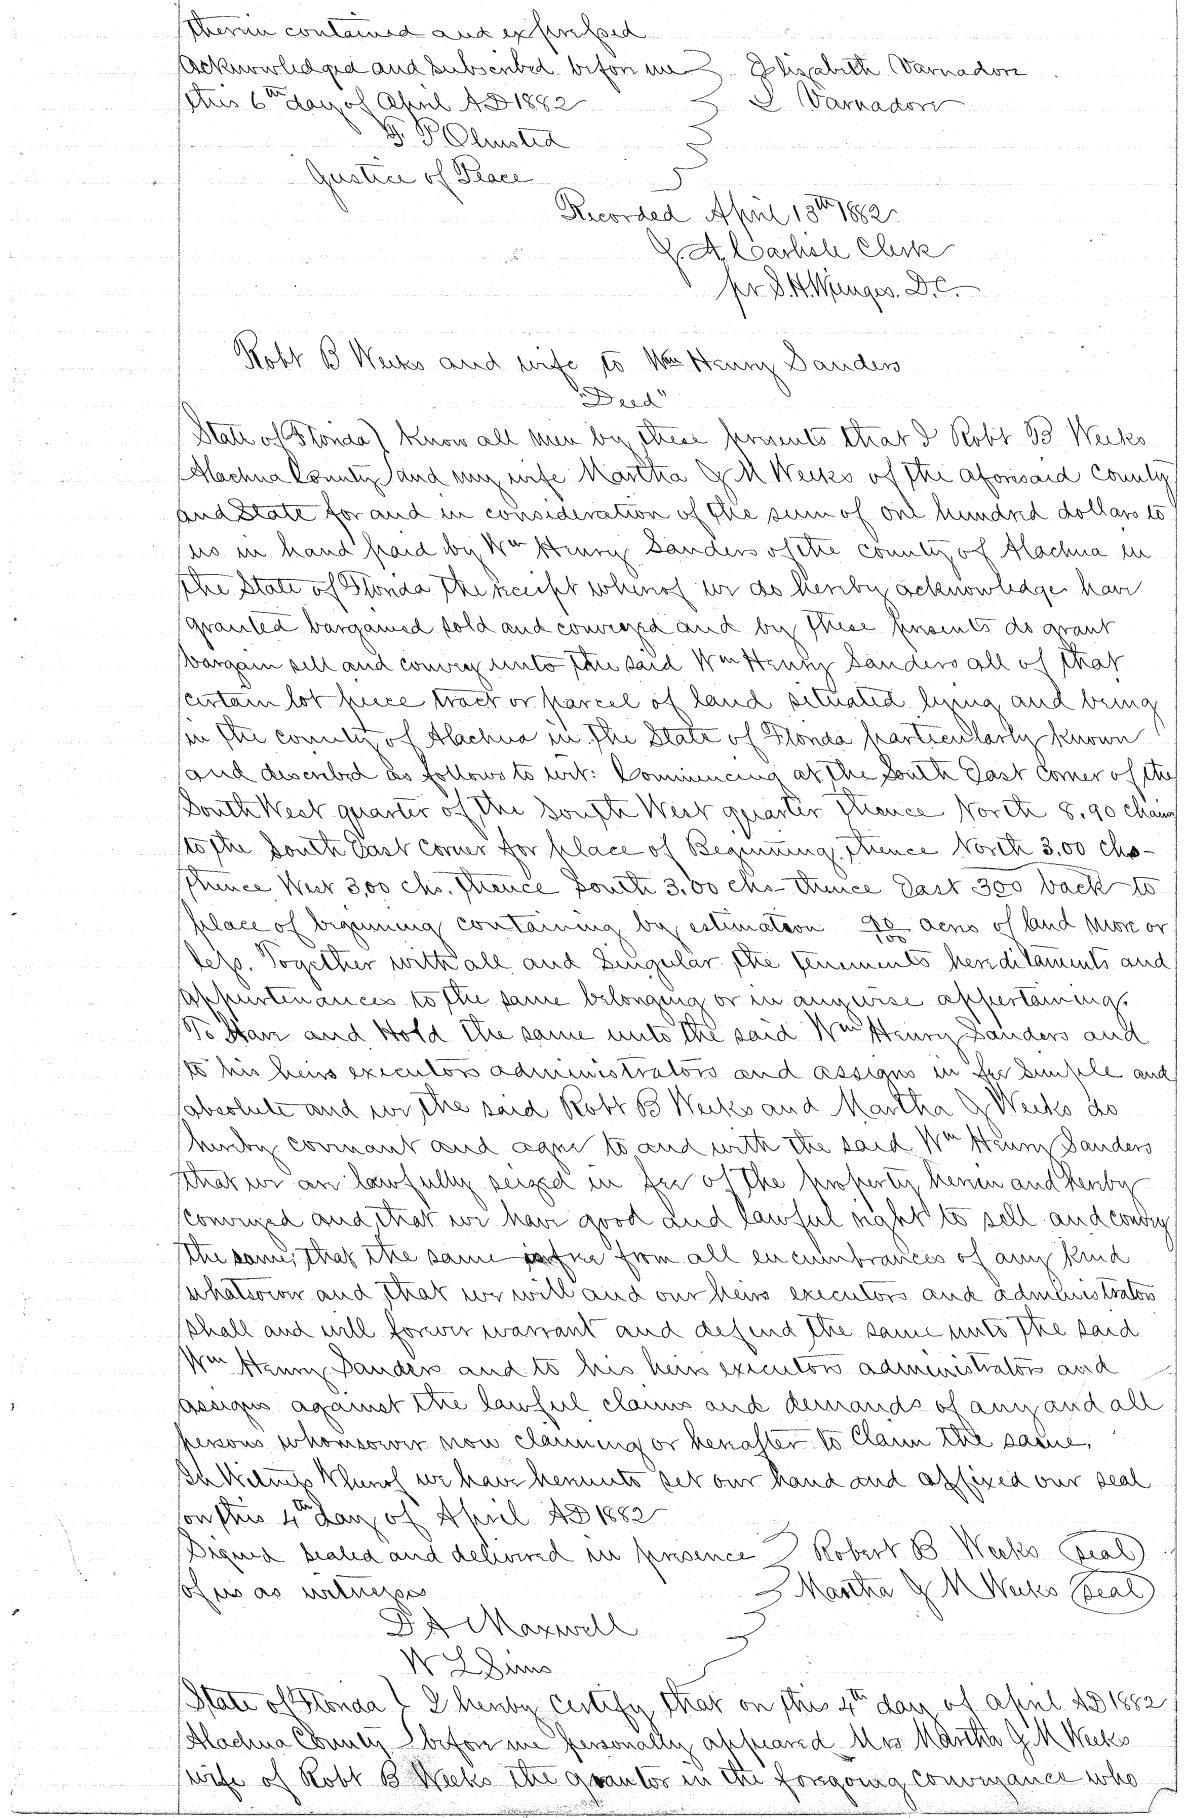 therein contained and expressed
Acknowledged and subscribed before me Elizabeth Varnadore
this 6th day of April AD 1882 L Varnadore
F. P Olmsted
Justice of Peace
Recorded April 13th 1882
J. A. Carlisle Clerk
pr S. H. Wienges. D.C.
Robt B Weeks and wife to Wm Henry Sanders
"Deed"
State of Florida) Know all men by these presents that I Robt B Weeks
Alachua County) and my wife Martha J M Weeks of the aforesaid County
and State for and in consideration of the sum of one hundred dollars to
us in hand paid by Wm Henry Sanders of the county of Alachua in
the State of Florida the receipt whereof we do hereby acknowledge have
granted bargained sold and conveyed and by these presents do grant
bargain sell and convey unto the said Wm Henry Sanders all of that
certain lot piece tract or parcel of land situated lying and being
in the county of Alachua in the State of Florida particularly known
and described as follows to wit: Commencing at the South East corner of the
South West quarter of the South West quarter thence North 8.90 chains
to the South East corner for place of Beginning, thence North 3.00 chs-
thence West 3.00 chs. thence South 3.00 chs- thence East 300 back to
place of beginning containing by estimation 90/100 acres of land more or
less. Together with all and Singular the tenements hereditaments and
appurtenances to the same belonging or in anywise appertaining.
To Have and Hold the same unto the said Wm Henry Sanders and
to his heirs executors administrators and assigns in fee simple and
absolute and we the said Robt B Weeks and Martha J Weeks do
hereby covenant and agree to and with the said Wm Henry Sanders
that we are lawfully seized in fee of the property herein and hereby
conveyed and that we have good and lawful right to sell and convey
the same; that the same is free from all encumbrances of any kind
whatsoever and that we will and our heirs executors and administrators
shall and will forever warrant and defend the same unto the said
Wm Henry Sanders and to his heirs executors administrators and
assigns against the lawful claims and demands of any and all
persons whomsoever now claiming or hereafter to claim the same.
In Witness Whereof we have hereunto set our hand and affixed our seal
on this 4th day of April AD 1882
Signed sealed and delivered in presence Robert B Weeks (seal)
of us as witnesses Martha J M Weeks (seal)
D A Maxwell
W L Sims
State of Florida } I hereby certify that on this 4th day of April AD 1882
Alachua County } before me personally appeared Mrs Martha J M Weeks
wife of Robt B Weeks the grantor in the foregoing conveyance who